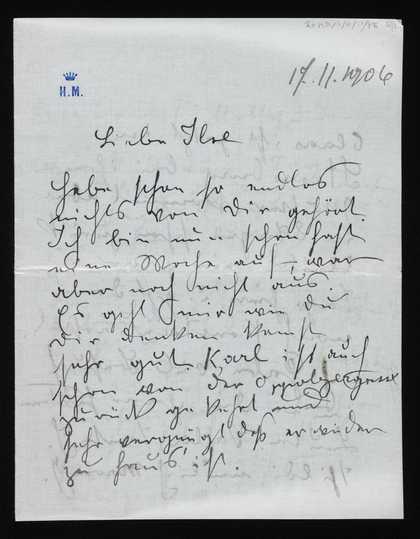 H.M.
17.11.1906
Liebe Ilse
Habe schon so endlos
nichts von Dir gehört.
Ich bin nun schon fast
eine Woche auf, war
aber noch nicht aus.
Es geht mir wie Du
Dir denken kannst
sehr gut. Karl ist auch
schon von der Oppolzergasse
zurück gekehrt und
sehr vergnügt daß er wieder
zu Haus ist.